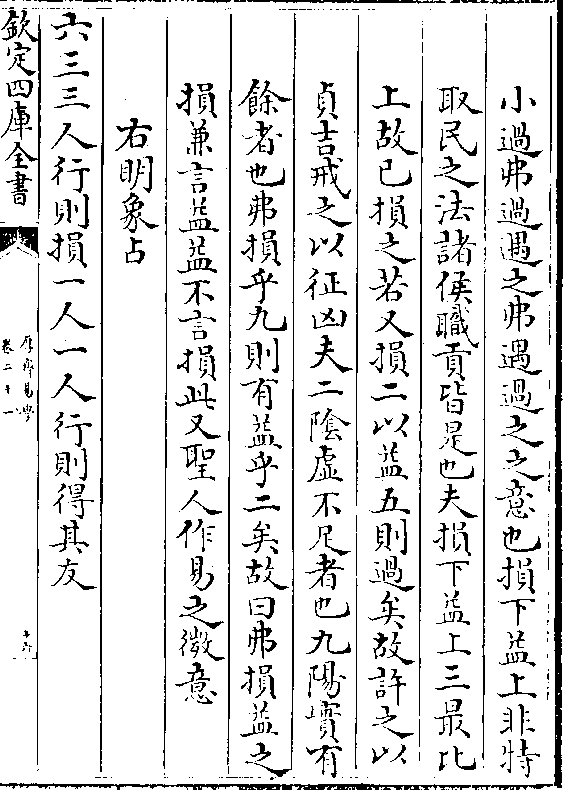 小過弗過遇之弗遇過之之意也損下益上非特
取民之法諸侯職貢皆是也夫損下益上三最比
上故已損之若又損二以益五則過矣故許之以
貞吉戒之以征凶夫二陰虛不足者也九陽實有
餘者也弗損乎九則有益乎二矣故曰弗損益之
損兼言益益不言損此又聖人作易之微意
右明象占
六三三人行則損一人一人行則得其友
欽定四庫全書
卷二十一